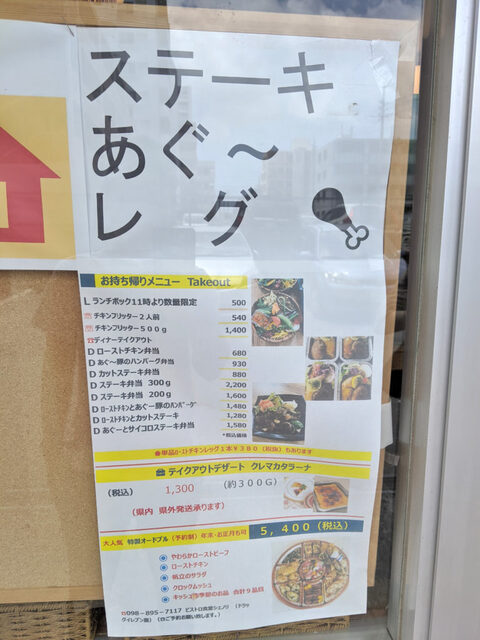 ステーキ
あぐ～
レッグ
お持ち帰りメニュー Takeout
L ランチボック11時より数量限定 500
チキンフリッター２人前 540
チキンフリッター５００ｇ 1,400
ディナーテイクアウト
D ローストチキン弁当 680
D あぐ～豚のハンバーグ弁当 930
D カットステーキ弁当 880
D ステーキ弁当 300ｇ 2,200
D ステーキ弁当 200ｇ 1,600
D ローストチキンとあぐー豚のハンバーグ 1,480
D ローストチキンとカットステーキ 1,280
D あぐーとサイコロステーキ弁当 1,580
*税込価格
●単品ローストチキンレッグ１本￥３８０（税抜）もあります
テイクアウトデザート クレマカタラーナ
（税込） 1,300 （約３００Ｇ）
（県内 県外発送承ります）
大人気 特製オードブル（予約制）年末・お正月も可 ５，４００（税込）
やわらかローストビーフ
ローストチキン
帆立のサラダ
クロックムッシュ
キッシュ等季節のお品 合計９品目
☎098-895-7117 ビストロ食堂シェノリ（テラッ